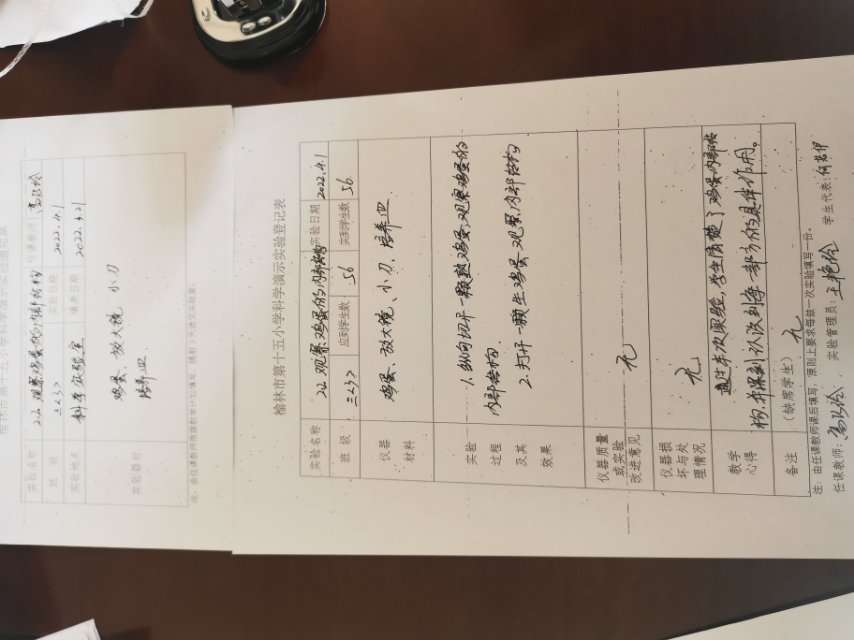 榆林市第十五小学科学演示实验通知单
实验名称 22.观察鸡蛋的内部结构 任课教师
班级 三<3> 实验日期 2022.4.1
实验地点 科学实验室 填表日期 2022.3.21
实验器材 鸡蛋、放大镜、小刀
培养皿
榆林市第十五小学科学演示实验登记表
实验名称 22.观察鸡蛋的内部结构 实验日期 2022.4.1
班级 三<3> 应到学生数 56 实到学生数 56
仪器材料 鸡蛋、放大镜、小刀、培养皿
实验过程及其效果
1.纵向切开一颗熟鸡蛋,观察鸡蛋的
内部结构.
2.打开一颗生鸡蛋,观察内部结构
仪器质量或实验改进意见 无
仪器损坏与处理情况 无
教学心得
通过本次实验,学生清楚了鸡蛋内部结
构,并深刻认识到每一部分的具体作用。
备注 (缺席学生) 无
注:由任课教师课后填写,原则上要求每做一次实验填写一份。
任课教师: 实验管理员:王艳玲 学生代表: